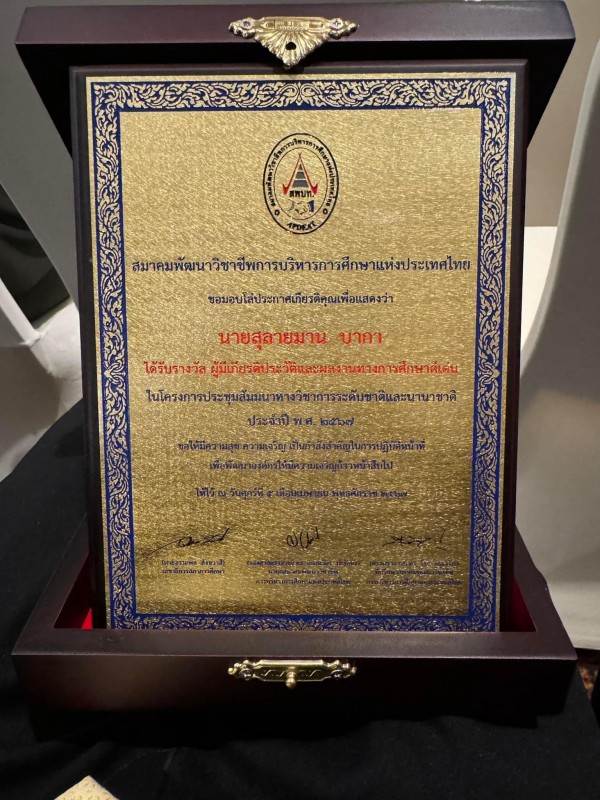 สมาคมพัฒนาวิชาชีพการบริหารการศึกษาแห่งประเทศไทย
สพบท.
APDEAT
สมาคมพัฒนาวิชาชีพการบริหารการศึกษาแห่งประเทศไทย
ขอมอบโล่ประกาศเกียรติคุณเพื่อแสดงว่า
นายสุลายมาน บากา
ได้รับรางวัล ผู้มีเกียรติประวัติและผลงานทางการศึกษาดีเด่น
ในโครงการประชุมสัมมนาทางวิชาการระดับชาติและนานาชาติ
ประจำปี พ.ศ. ๒๕๖๗
ขอให้มีความสุข ความเจริญ เป็นกำลังสำคัญในการปฏิบัติหน้าที่
เพื่อพัฒนาองค์กรให้มีความเจริญก้าวหน้าสืบไป
ให้ไว้ ณ วันศุกร์ที่ ๕ เดือนเมษายน พุทธศักราช ๒๕๖๗
เลขาธิการสภาการศึกษา